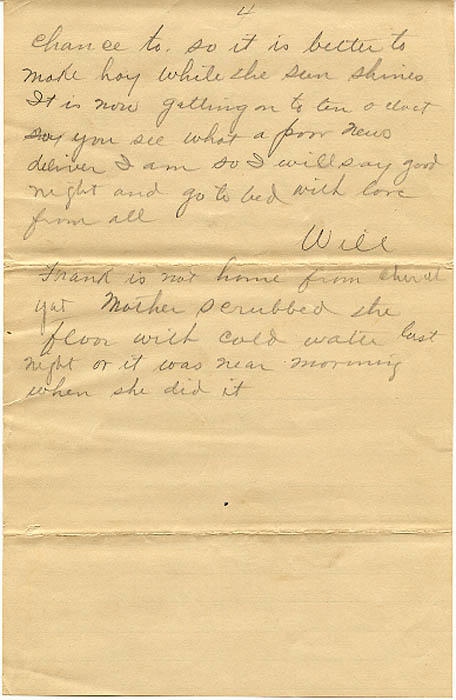 4
chance to. so it is better to
make hay while the sun shines
It is now getting on to ten o cloct
you see what a poor news
deliver I am so I will say good
night and go to bed with love
from all
Will
Frank is not home from church
yat Mother scrubbed the
floor with cold water last
night or it was near morning
when she did it